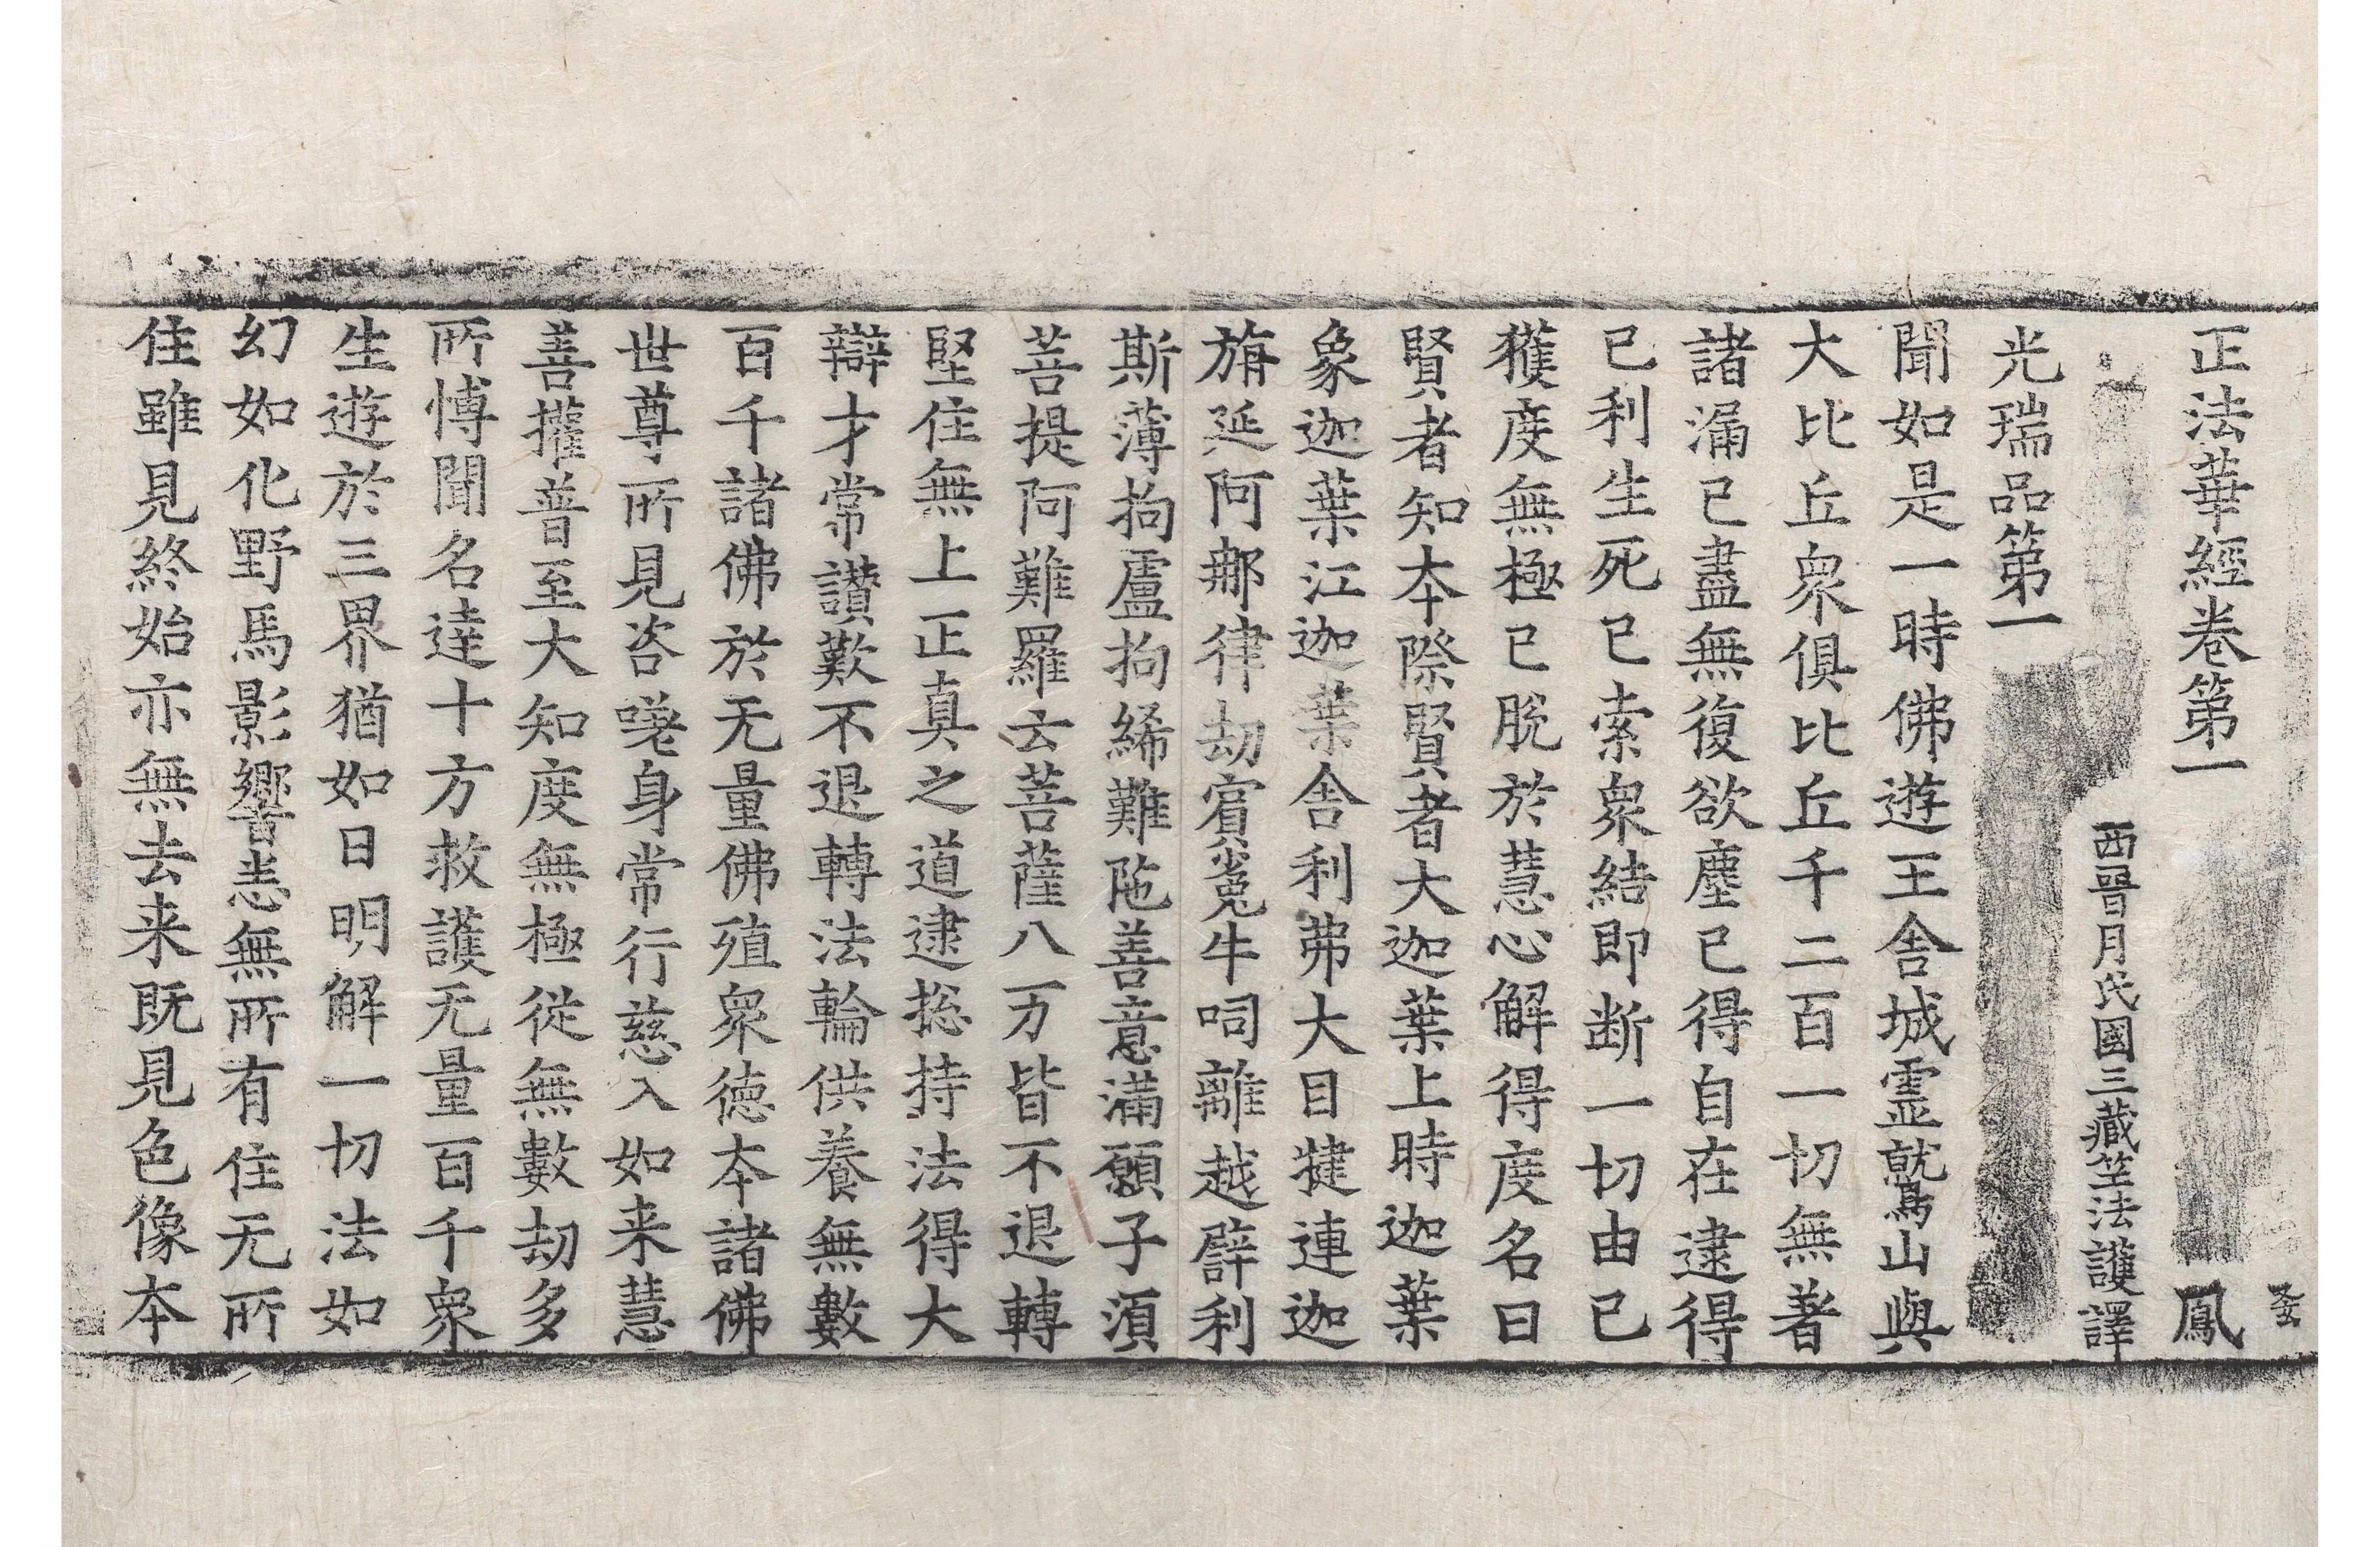 正法華經卷第一　鳳
西晉月氏國三藏竺法護譯
光瑞品第一
聞如是一時佛遊王舍城靈鷲山與
大比丘衆俱比丘千二百一切無著
諸漏已盡無復欲塵已得自在逮得
已利生死已索衆結即断一切由已
獲度無極已脫於慧心解得度名曰
賢者知本際賢者大迦葉上時迦葉
象迦葉江迦葉舍利弗大目揵連迦
旃延阿那律劫賓㝹牛呞離越譬利
斯薄拘盧拘絺難陁善意滿願子須
菩提阿難羅云菩薩八万皆不退轉
堅住無上正真之道逮揔持法得大
辯才常讃歎不退轉法輪供養無數
百千諸佛於无量佛殖衆德本諸佛
世尊所見咨嗟身常行慈入如来慧
善權普至大知度無極從無數劫多
所博聞名達十方救護无量百千衆
生遊於三界猶如日明解一切法如
幻如化野馬影響悉無所有住无所
住雖見終始亦無去来既見色像本